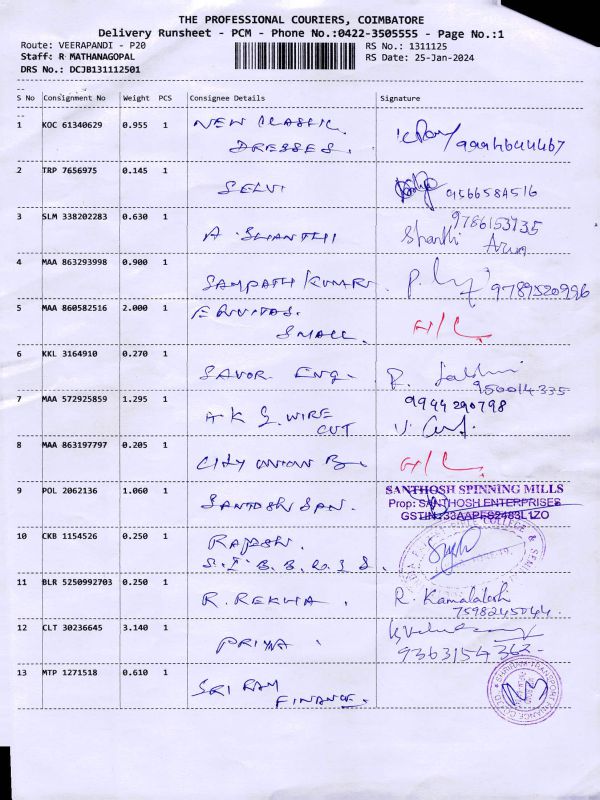 THE PROFESSIONAL COURIERS, COIMBATORE
Delivery Runsheet - PCM - Phone No.:0422-3505555 - Page No.:1
Route: VEERAPANDI - P20 RS No.: 1311125
Staff: R MATHANAGOPAL RS Date: 25-Jan-2024
DRS No.: DCJB131112501
S No Consignment No Weight PCS Consignee Details Signature
1 KOC 61340629 0.955 1 NEW CLASSIC
DRESSES. 9994644467
2 TRP 7656975 0.145 1 SELVI 9566584516
3 SLM 338202283 0.630 1 A. SHANTHI 9786153735
Shanthi
Arun
4 MAA 863293998 0.900 1 SAMPATH KUMAR. 9789520996
5 MAA 860582516 2.000 1
SMALL. H/C
6 KKL 3164910 0.270 1 SAVOR ENG.
950014335
7 MAA 572925859 1.295 1 A K S. WIRE 9944290798
CUT
8 MAA 863197797 0.205 1 CITY UNION B H/C
9 POL 2062136 1.060 1 SANTOSH SPN. SANTHOSH SPINNING MILLS
Prop: SANTHOSH ENTERPRISES
GSTIN:
10 CKB 1154526 0.250 1 RAJESH.
COLLEGE &
11 BLR 5250992703 0.250 1 R. REKHA. R. Kamalatoshi
7598245044.
12 CLT 30236645 3.140 1 PRIYA. 9363154362.
13 MTP 1271518 0.610 1 SRI RAM
FINANCE.
SHRIRAM TRANSPORT FINANCE CO LTD